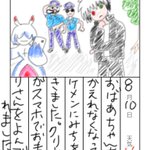 8月10日 天気
おばあちゃん
かえれなくなっ
ケメンにみちを
きました。クリ
がスマホでおま
りさんをよんで
れました